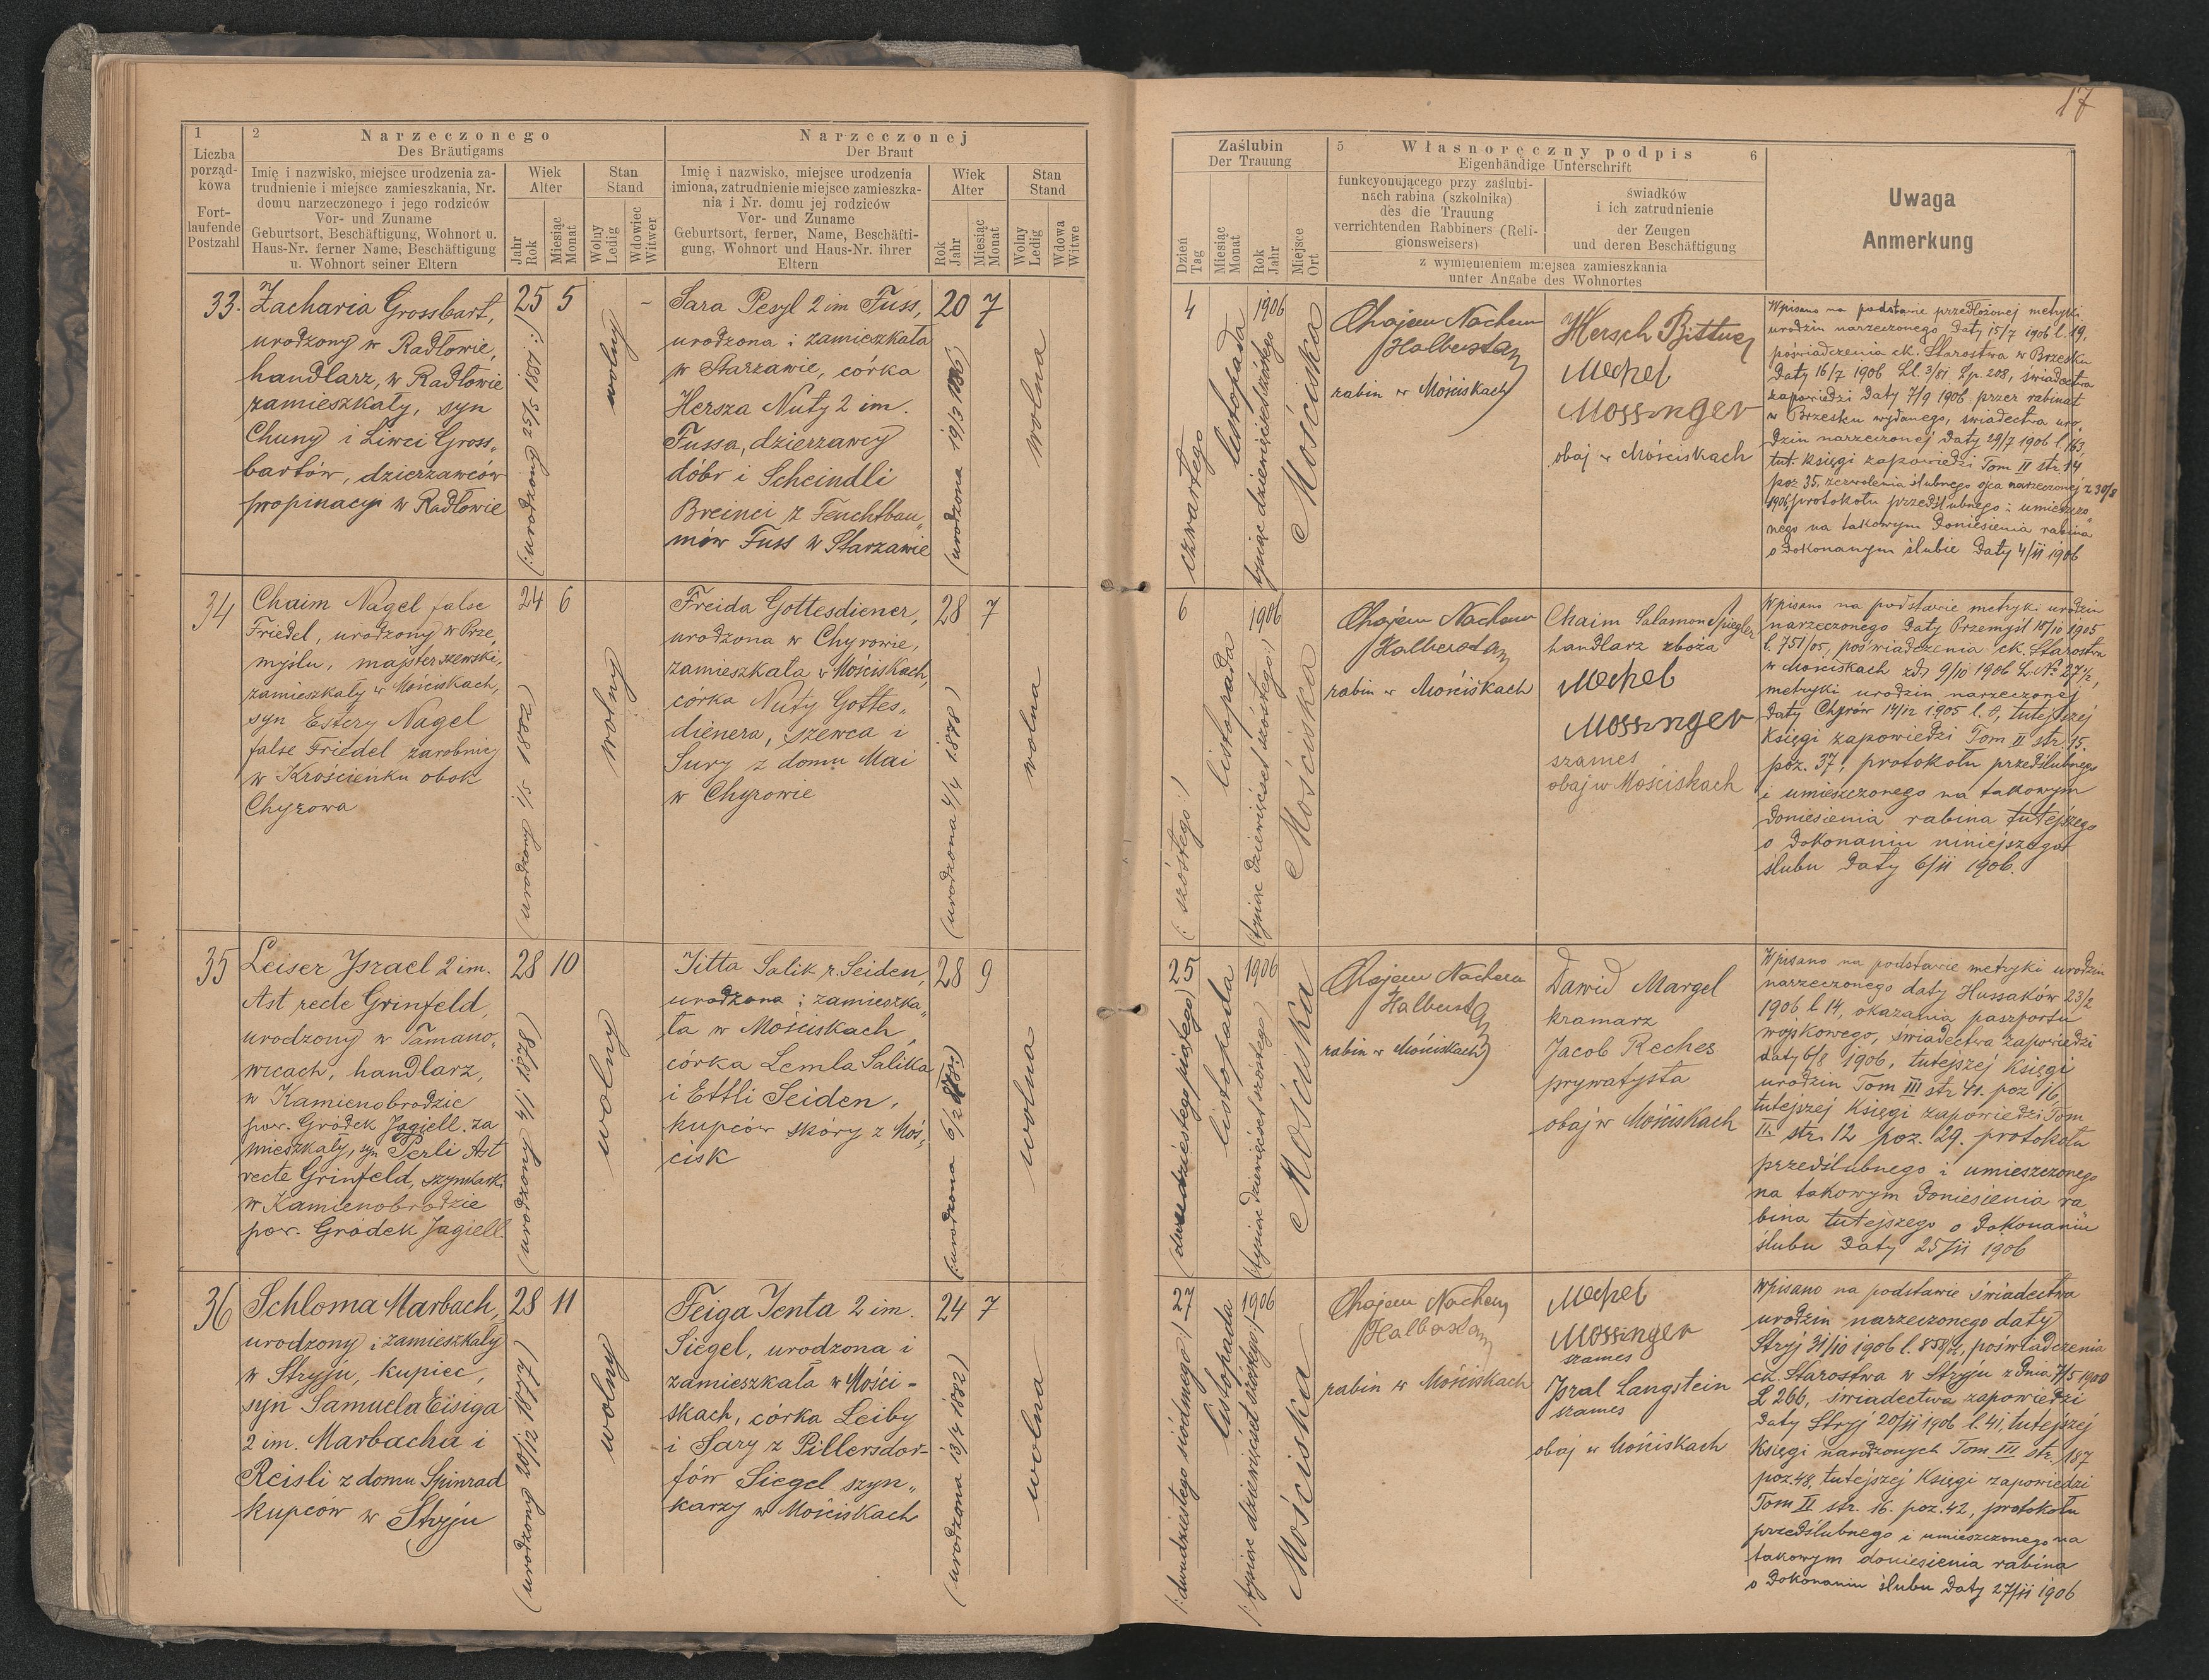 17
1
Liczba
porząd-
kowa
Fort-
laufende
Postzahl
2
Narzeczonego
Des Bräutigams
Imię i nazwisko, miejsce urodzenia za-
trudnienie i miejsce zamieszkania, Nr.
domu narzeczonego i jego rodziców
Vor- und Zuname
Geburtsort, Beschäftigung, Wohnort u.
Haus-Nr. ferner Name, Beschäftigung
u. Wohnort seiner Eltern
Wiek
Alter
Jahr
Rok
Miesiąc
Monat
Stan
Stand
Wolny
Ledig
Wdowiec
Witwer
Narzeczonej
Der Braut
Imię i nazwisko, miejsce urodzenia
imiona, zatrudnienie miejsce zamieszka-
nia i Nr. domu jej rodziców
Vor- und Zuname
Geburtsort, ferner, Name, Beschäfti-
gung, Wohnort und Haus-Nr. ihrer
Eltern
Wiek
Alter
Rok
Jahr
Miesiąc
Monat
Stan
Stand
Wolny
Ledig
Wdowa
Witwe
Zaślubin
Der Trauung
Dzień
Tag
Miesiąc
Monat
Rok
Jahr
Miejsce
Ort
5 Własnoręczny podpis 6
Eigenhändige Unterschrift
funkcyonującego przy zaślubi-
nach rabina (szkolnika)
des die Trauung
verrichtenden Rabbiners (Reli-
gionsweisers)
świadków
i ich zatrudnienie
der Zeugen
und deren Beschäftigung
z wymienieniem miejsca zamieszkania
unter Angabe des Wohnortes
Uwaga
Anmerkung
33.
Zacharia Grossbart,
urodzony w Radłowie,
handlarz, w Radłowie
zamieszkały, syn
Chuny i Liwci Gross„
bartów, dzierzawców
propinacyi w Radłowie
25 5
(: urodzony 25/5 1881 :)
wolny
-
Sara Pesyl 2 im Fuss,
urodzona i zamieszkała
w Starzawie, córka
Hersza Nuty 2 im.
Fussa, dzierzawcy
dóbr i Scheindli
Breinci z Feuchtbau„
mów Fuss w Starzawie
20 7
(urodzona 19/3 1886)
wolna
4
czwartego
listopada
1906
tysiąc dziewięćset szóstego
Mościska
Chajem Nachem
Halberstam
rabin w Mościskach
Hersch Bittner
Mechel
Mossinger
obaj w Mościskach
Wpisano na podstawie przedłożonej metryki
urodzin narzeczonego daty 15/7 1906 l. 19,
poświadczenia ck. Starostwa w Brzesku
daty 16/7 1906 Ll. 3/81 Lp. 208, świadectwa
zapowiedzi daty 7/9 1906 przez rabinat
w Brzesku wydanego, świadectwa uro„
dzin narzeczonej daty 29/7 1906 l. 163,
tut. księgi zapowiedzi Tom II str. 14
poz 35, zezwolenia ślubnego ojca narzeczonej z 30/8
1906, protokołu przedślubnego i umieszczo„
nego na takowym doniesienia rabina
o dokonanym ślubie daty 4/11 1906
34
Chaim Nagel false
Friedel, urodzony w Prze„
myślu, majster szewski,
zamieszkały w Mościskach,
syn Estery Nagel
false Friedel zarobnicy
w Krościenku obok
Chyrowa
24 6
(urodzony 1/5 1882)
wolny
Freida Gottesdiener,
urodzona w Chyrowie,
zamieszkała w Mościskach,
córka Nuty Gottes„
dienera, szewca i
Sury z domu Mai
w Chyrowie
28 7
(urodzona 4/4 1878)
wolna
6
(: szóstego :)
listopada
1906
(tysiąc dziewięćset szóstego)
Mościska
Chajem Nachem
Halberstam
rabin w Mościskach
Chaim Salamon Spiegler
handlarz zboża
Mechel
Mossinger
szames
obaj w Mościskach
Wpisano na podstawie metryki urodzin
narzeczonego daty Przemyśl 18/10 1905
l. 751/05, poświadczenia ck. Starostwa
w Mościskach zd. 9/10 1906 L. No 27½,
metryki urodzin narzeczonej
daty Chyrów 14/12 1905 l. 8, tutejszej
księgi zapowiedzi Tom II str. 15.
poz. 37, protokołu przedślubnego
i umieszczonego na takowym
doniesienia rabina tutejszego
o dokonaniu niniejszego
ślubu daty 6/11 1906.
35
Leiser Israel 2 im.
Ast recte Grinfeld,
urodzony w Tamano„
wicach, handlarz,
w Kamienobrodzie
pow. Gródek Jagiell. za
mieszkały, syn Perli Ast
recte Grinfeld, szynkarki
w Kamienobrodzie
pow. Gródek Jagiell.
28 10
(urodzony 4/1 1878)
wolny
Jitta Salik r. Seiden,
urodzona i zamieszka„
ła w Mościskach,
córka Lemla Salika
i Ettli Seiden,
kupców skóry z Moś„
cisk
28 9
wolna
25
(dwudziestego piątego)
listopada
1906
(tysiąc dziewięćset szóstego)
Mościska
Chajem Nachem
Halberstam
rabin w Mościskach
Dawid Margel
kramarz
Jacob Reches
prywatysta
obaj w Mościskach
Wpisano na podstawie metryki urodzin
narzeczonego daty Hussaków 23/2
1906, l. 14, okazania paszportu
wojskowego, świadectwa zapowiedzi
daty 6/8 1906, tutejszej księgi
urodzin Tom III str 41. poz 16,
tutejszej księgi zapowiedzi Tom
II. str. 12 poz. 29. protokołu
przedślubnego i umieszczonego
na takowym doniesienia ra
bina tutejszego o dokonaniu
ślubu daty 25/11 1906
36
Schloma Marbach,
urodzony i zamieszkały
w Stryju, kupiec,
syn Samuela Eisiga
2 im. Marbacha i
Reisli z domu Spinrad
kupców w Stryju
28 11
(urodzony 20/12 1877)
wolny
Feiga Jenta 2 im.
Siegel, urodzona i
zamieszkała w Mości-
skach, córka Leiby
i Sary z Pillersdor-
fów Siegel szyn„
karzy w Mościskach
24 7
(urodzona 13/4 1882)
wolna
27
(: dwudziestego siódmego :)
listopada
1906
(: tysiąc dziewięćset szóstego :)
Mościska
Chajem Nachem
Halberstam
rabin w Mościskach
Mechel
Mossinger
szames
Isral Langstein
szames
obaj w Mościskach
Wpisano na podstawie świadectwa
urodzin narzeczonego daty
Stryj 31/10 1906 l. 858/2, poświadczenia
ck. Starostwa w Stryju z dnia 7/5 1900
L 266, świadectwa zapowiedzi
daty Stryj 20/11 1906 l. 41, tutejszej
księgi narodzonych Tom III str. 187
poz. 48, tutejszej księgi zapowiedzi
Tom II str. 16. poz. 42, protokołu
przedślubnego i umieszczonego na
takowym doniesienia rabina
o dokonaniu ślubu daty 27/11 1906